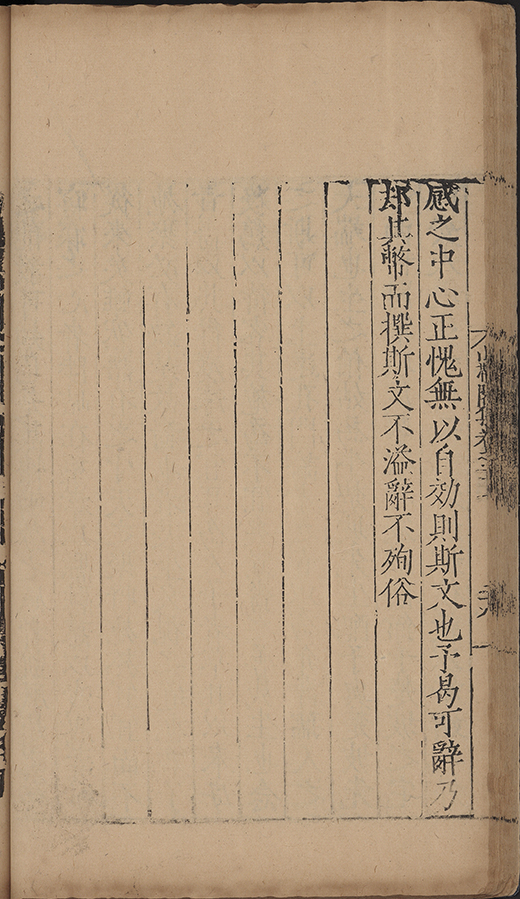 感之中心正愧無以自効則斯文也予曷可辭乃
却其幣而撰斯文不溢辭不殉俗